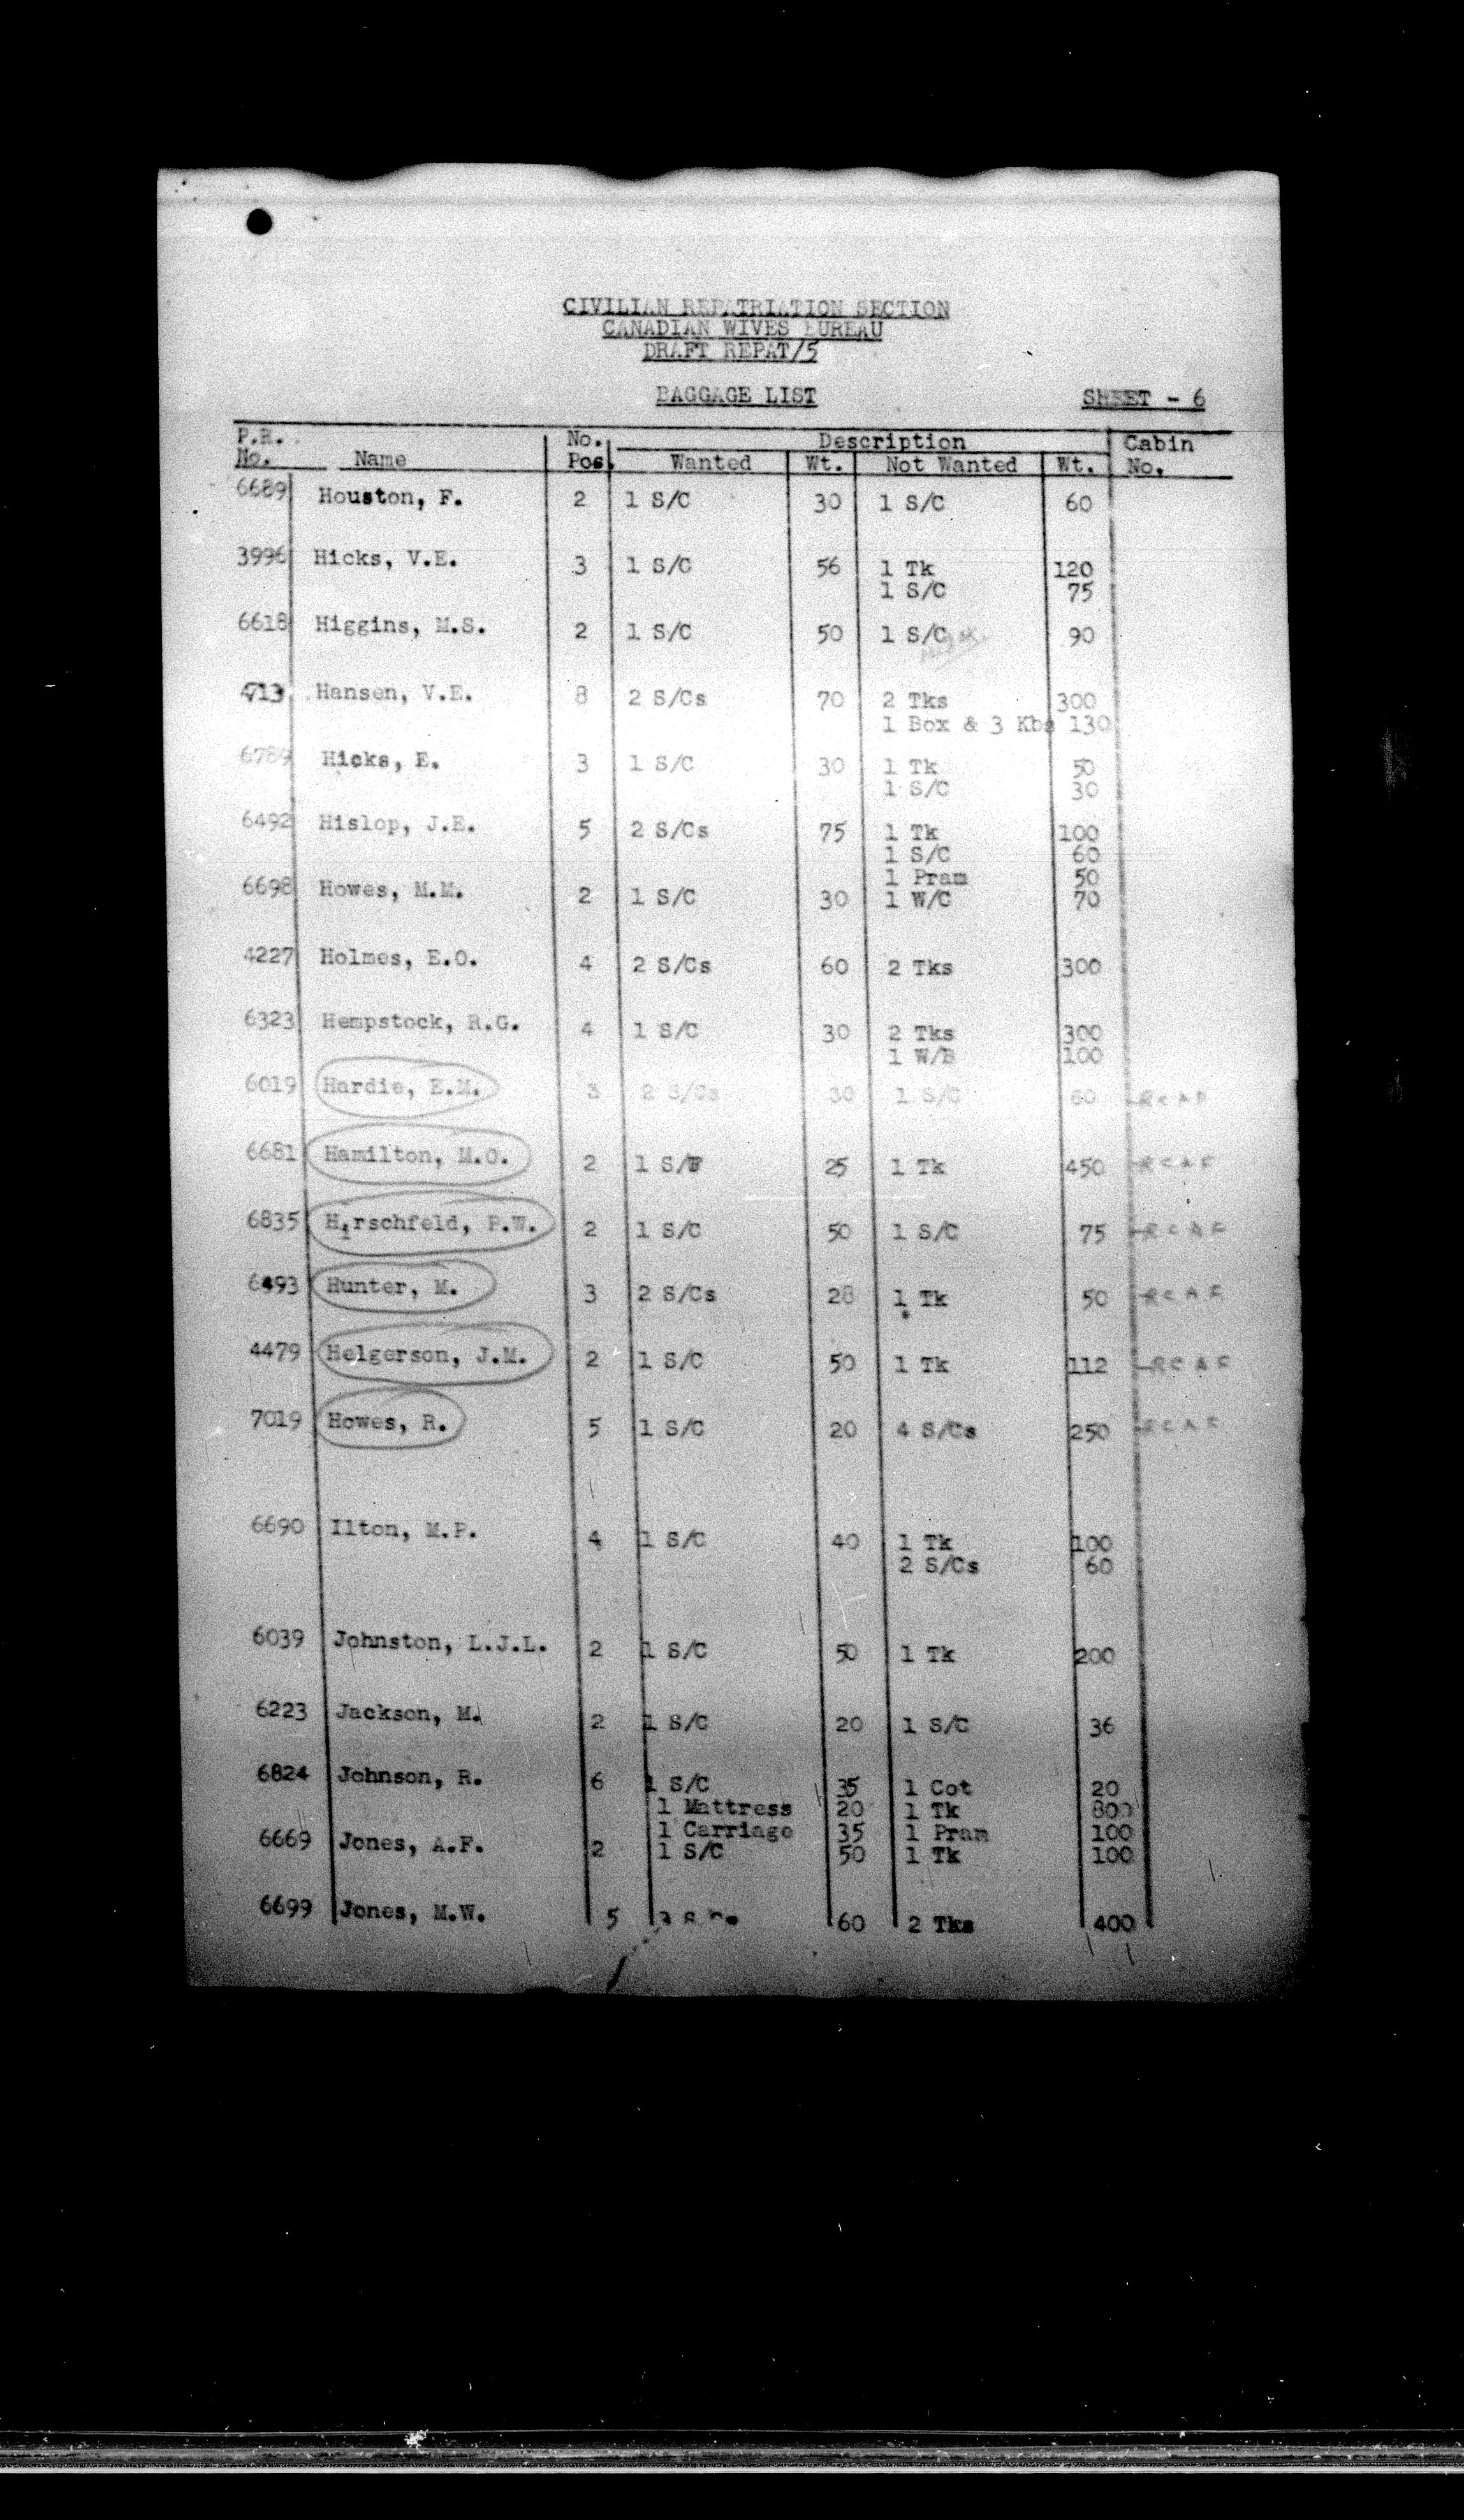 CIVILIAN REPATRIATION SECTION
CANADIAN WIVES BUREAU
DRAFT REPAT/5
BAGGAGE LIST SHEET - 6
P.R. No. Description Cabin
No. Name Pos. Wanted Wt. Not Wanted Wt. No.
6689 Houston, F. 2 1 S/C 30 1 S/C 60
3996 Hicks, V.E. 3 1 S/C 56 1 Tk 120
1 S/C 75
6618 Higgins, M.S. 2 1 S/C 50 1 S/C 90
4713 Hansen, V.E. 8 2 S/Cs 70 2 Tks 300
1 Box & 3 Kbs 130
6789 Hicks, E. 3 1 S/C 30 1 Tk 50
1 S/C 30
6492 Hislop, J.E. 5 2 S/Cs 75 1 Tk 100
1 S/C 60
1 Pram 50
6698 Howes, M.M. 2 1 S/C 30 1 W/C 70
4227 Holmes, E.O. 4 2 S/Cs 60 2 Tks 300
6323 Hempstock, R.G. 4 1 S/C 30 2 Tks 300
1 W/B 100
6019 Hardie, E.M. 3 2 S/Cs 30 1 S/C 60 RCAF
6681 Hamilton, M.O. 2 1 25 1 Tk 450 RCAF
6835 Hirschfeld, P.W. 2 1 S/C 50 1 S/C 75 RCAF
6493 Hunter, M. 3 2 S/Cs 28 1 Tk 50 RCAF
4479 Helgerson, J.M. 2 1 S/C 50 1 Tk 112 RCAF
7019 Howes, R. 5 1 S/C 20 4 S/Cs 250 RCAF
6690 Ilton, M.P. 4 1 S/C 40 1 Tk 100
2 S/Cs 60
6039 Johnston, L.J.L. 2 1 S/C 50 1 Tk 200
6223 Jackson, M. 2 1 S/C 20 1 S/C 36
6824 Johnson, R. 6 1 S/C 35 1 Cot 20
1 Mattress 20 1 Tk 800
1 Carriage 35 1 Pram 100
6669 Jones, A.F. 2 1 S/C 50 1 Tk 100
6699 Jones, M.W. 5 60 2 Tks 400